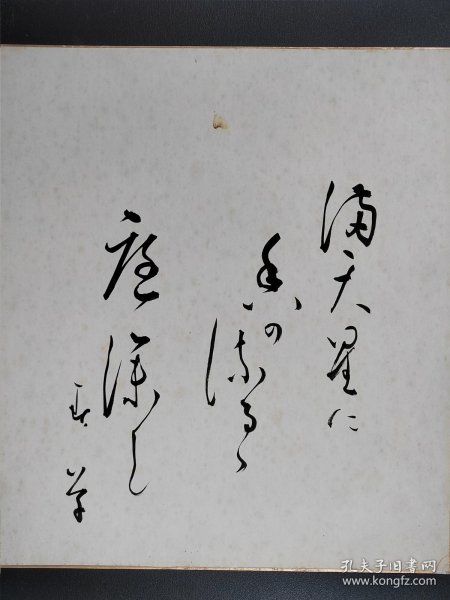 満天星に
香の
流るゝ
庭深し
孔夫子旧书网
www.kongfz.com